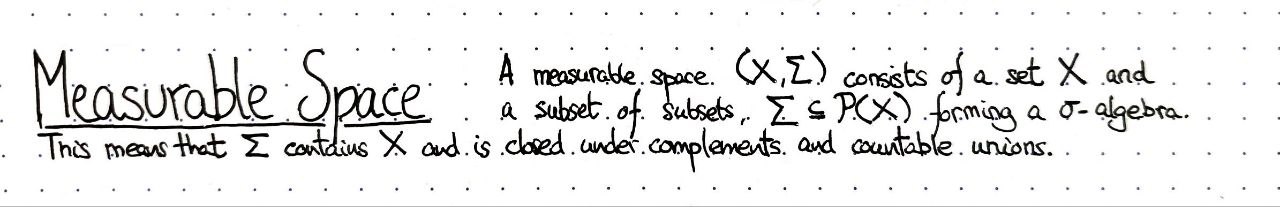 Measurable Space
A measurable space (X,Σ) consists of a set X and
a subset of subsets, Σ ⊆ P(X) forming a σ-algebra.
This means that Σ contains X and is closed under complements and countable unions.